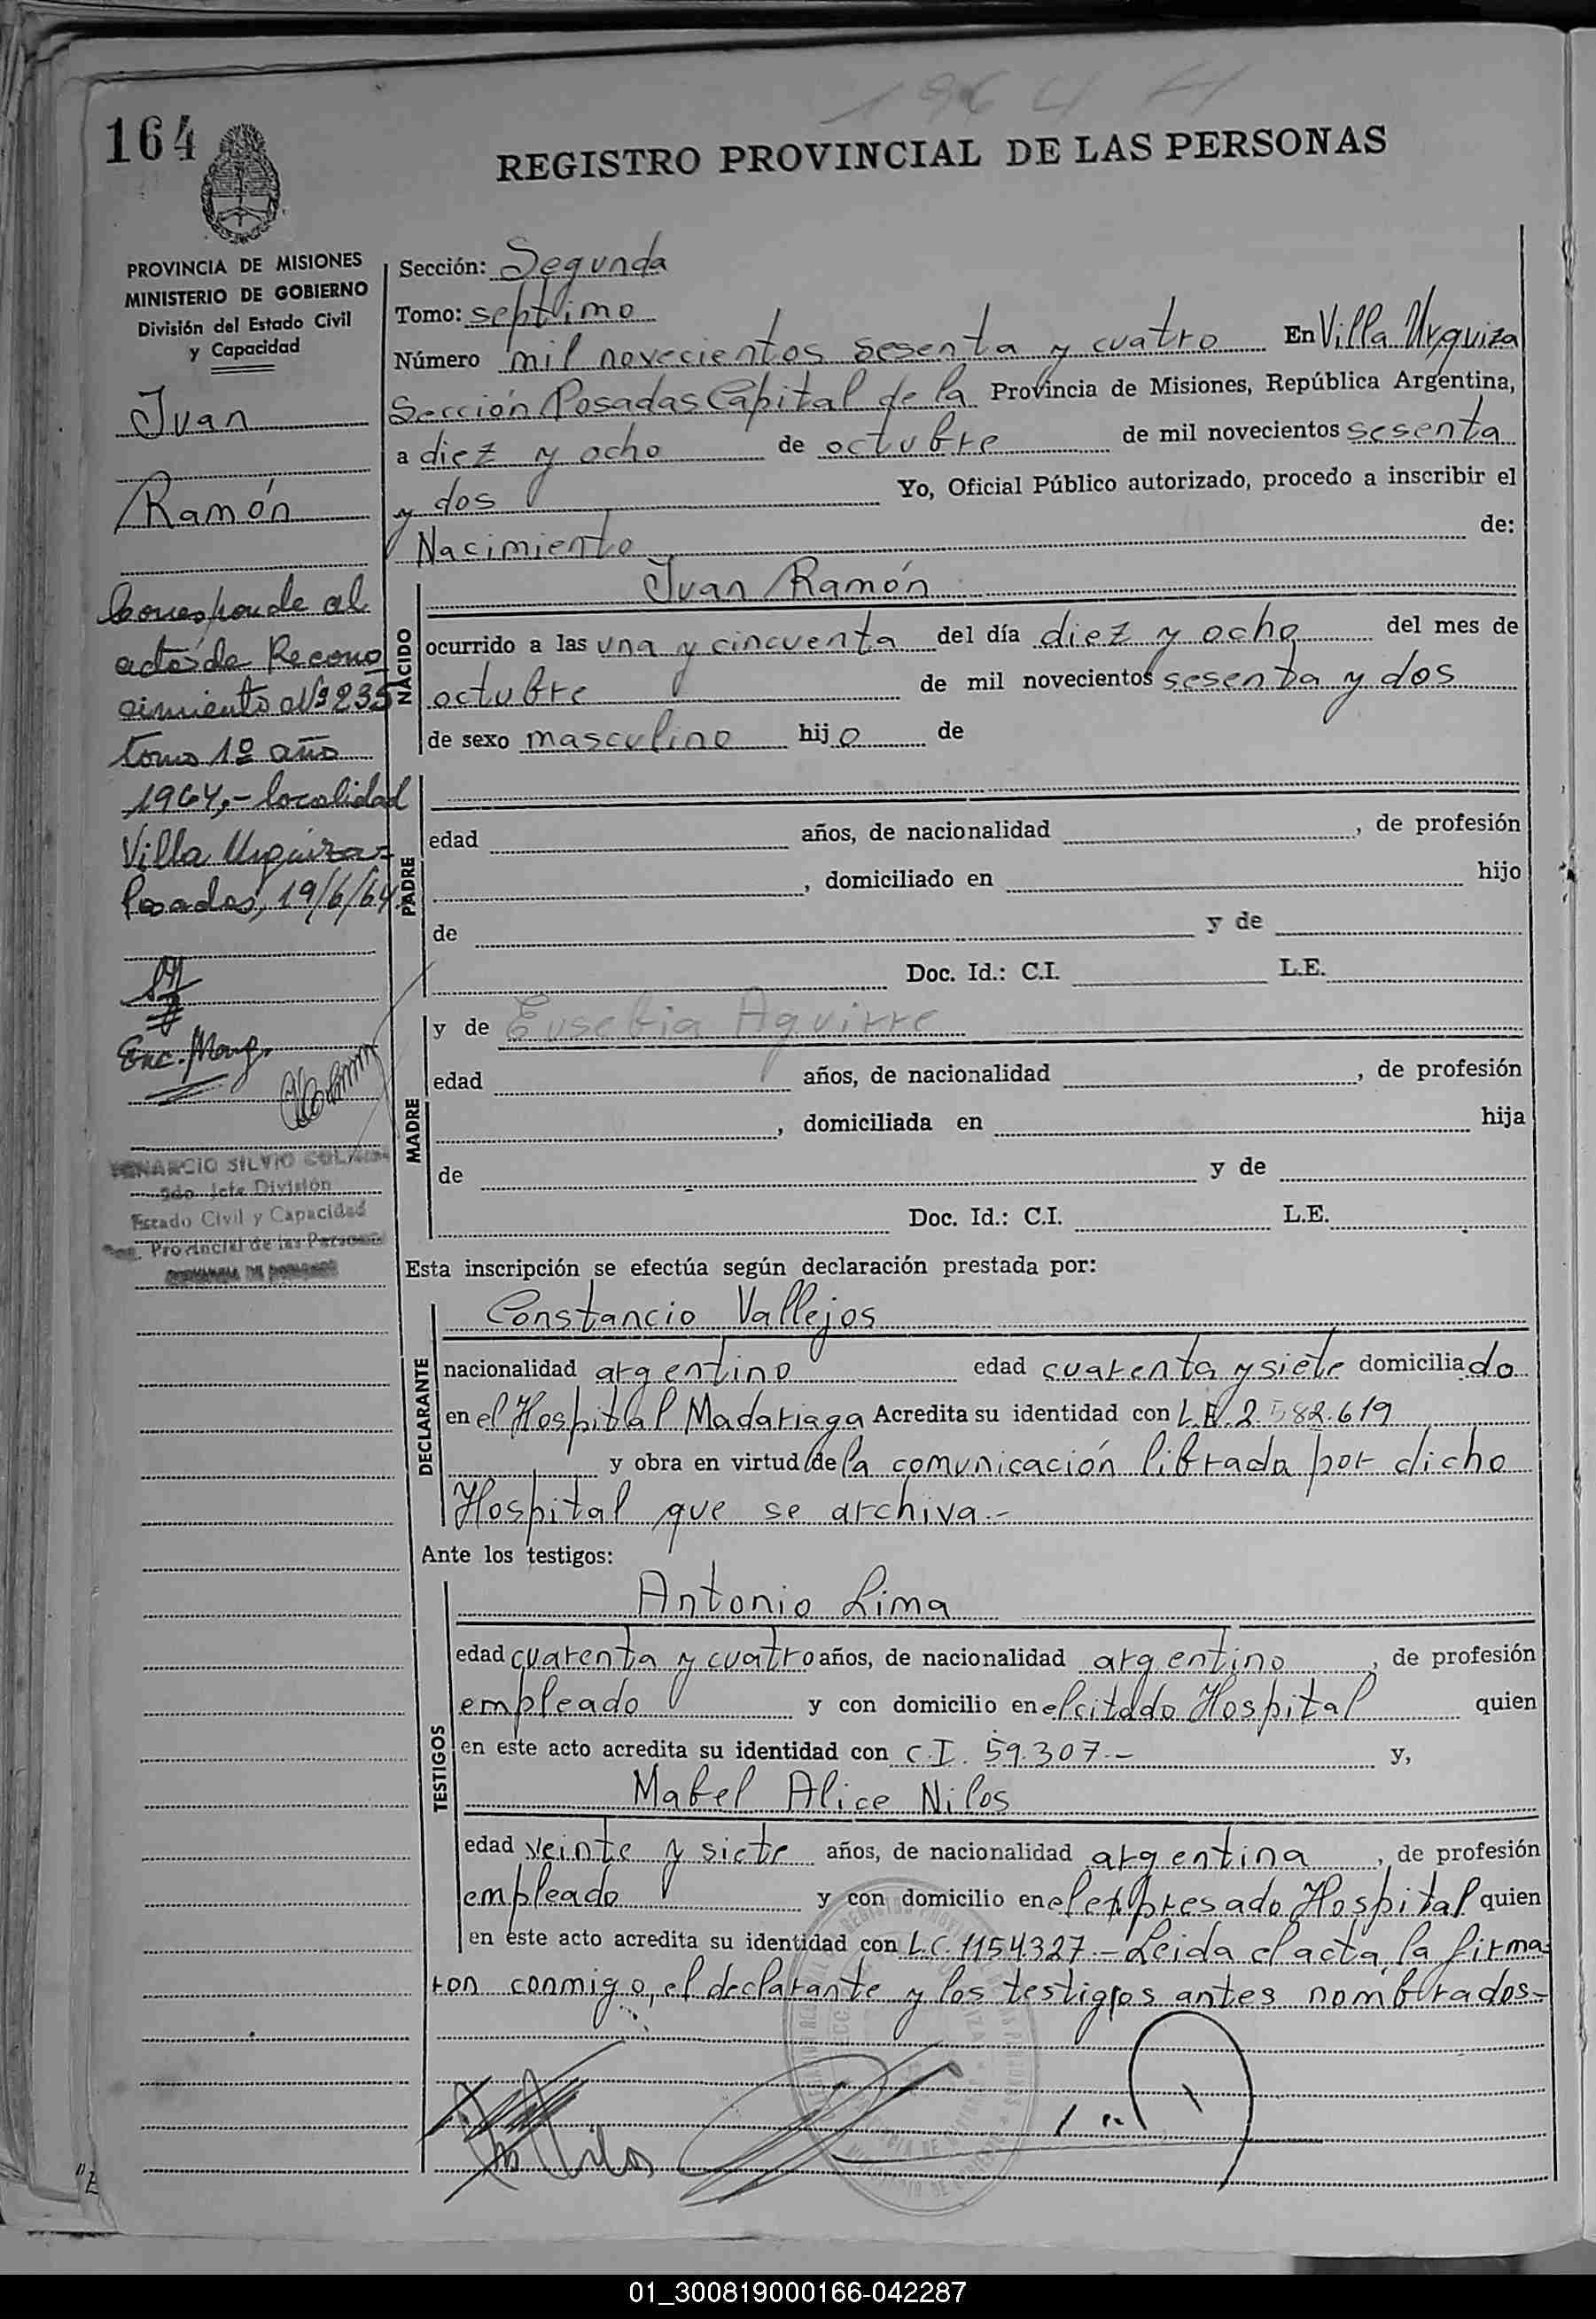 1964 H
164
REGISTRO PROVINCIAL DE LAS PERSONAS
PROVINCIA DE MISIONES
MINISTERIO DE GOBIERNO
División del Estado Civil
y Capacidad
Juan
Ramón
Corresponde al
acta de Recono
cimiento Nº 235
tomo 1º año
1964,- localidad
Villa Urquiza-
Posadas, 19/6/64.
Enc. Marg.
SILVIO
2do. Jefe División
Estado Civil y Capacidad
Reg. Provincial de las Personas
Sección: Segunda
Tomo: septimo
Número mil novecientos sesenta y cuatro En Villa Urquiza
Sección Posadas Capital de la Provincia de Misiones, República Argentina,
a diez y ocho de octubre de mil novecientos sesenta
y dos Yo, Oficial Público autorizado, procedo a inscribir el
Nacimiento de:
Juan Ramón
NACIDO
ocurrido a las una y cincuenta del día diez y ocho del mes de
octubre de mil novecientos sesenta y dos
de sexo masculino hijo de
PADRE
edad años, de nacionalidad , de profesión
, domiciliado en hijo
de y de
Doc. Id.: C.I. L.E.
MADRE
y de Eusebia Aguirre
edad años, de nacionalidad , de profesión
, domiciliada en hija
de y de
Doc. Id.: C.I. L.E.
Esta inscripción se efectúa según declaración prestada por:
DECLARANTE
Constancio Vallejos
nacionalidad argentino edad cuarenta y siete domiciliado
en el Hospital Madariaga Acredita su identidad con L.E. 2.582.619
y obra en virtud de la comunicación librada por dicho
Hospital que se archiva.-
Ante los testigos:
TESTIGOS
Antonio Lima
edad cuarenta y cuatro años, de nacionalidad argentino, de profesión
empleado y con domicilio en el citado Hospital quien
en este acto acredita su identidad con C.I. 59.307.- y,
Mabel Alice Nilos
edad veinte y siete años, de nacionalidad argentina, de profesión
empleado y con domicilio en el expresado Hospital quien
en este acto acredita su identidad con L.C. 1154327.- Leida el acta, la firma-
ron conmigo, el declarante y los testigos antes nombrados.-
Nilos
01_300819000166-042287